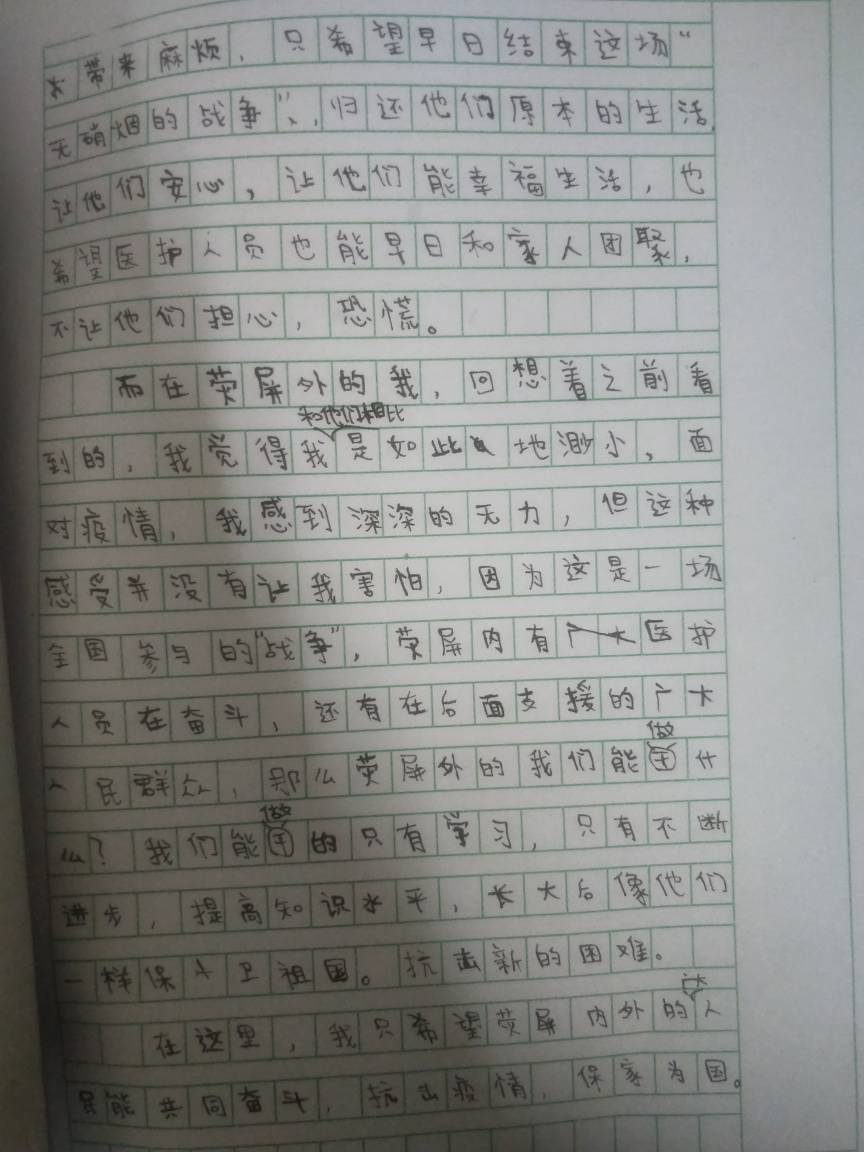 大带来麻烦，只希望早日结束这场“
无硝烟的战争”、，归还他们原本的生活，
让他们安心，让他们能幸福生活，也
希望医护人员也能早日和家人团聚，
不让他们担心，恐慌。
而在荧屏外的我，回想着之前看
和他们相比
到的，我觉得我是如此地渺小，面
对疫情，我感到深深的无力，但这种
感受并没有让我害怕，因为这是一场
全国参与的“战争”，荧屏内有广大医护
人员在奋斗，还有在后面支援的广大
做
人民群众，那么荧屏外的我们能干什
做
么？我们能干的只有学习，只有不断
进步，提高知识水平，长大后像他们
一样保卫祖国。抗击新的困难。
在这里，我只希望荧屏内外的人
民能共同奋斗，抗击疫情，保家为国。